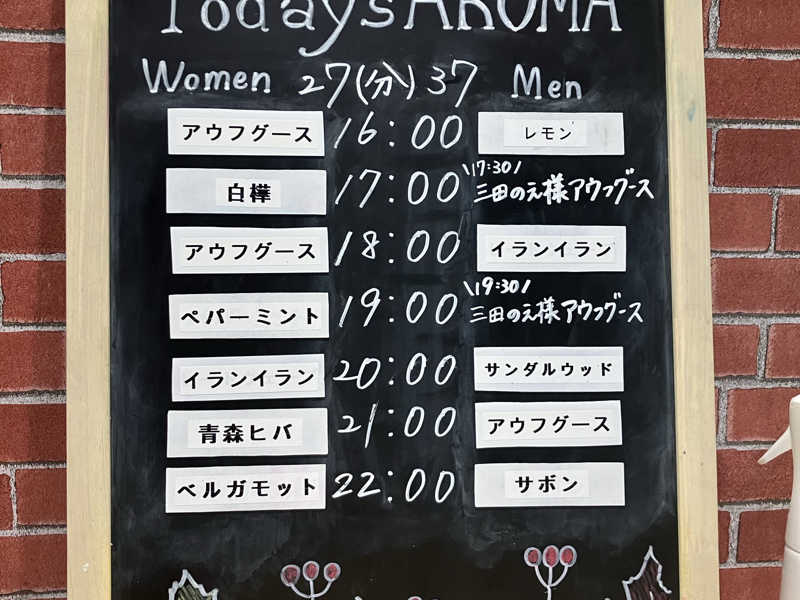 Today's AROMA
Women 27(分)37 Men
アウフグース 16:00 レモン
白樺 17:00 \17:30/ 三田のえ様アウフグース
アウフグース 18:00 イランイラン
ペパーミント 19:00 \19:30/ 三田のえ様アウフグース
イランイラン 20:00 サンダルウッド
青森ヒバ 21:00 アウフグース
ベルガモット 22:00 サボン